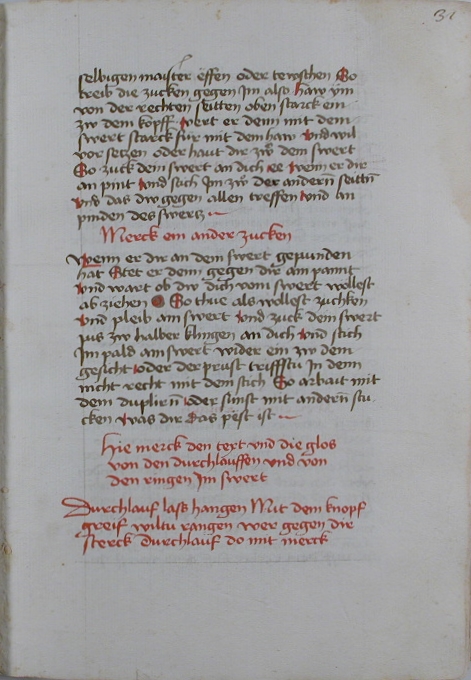 31
selbigen maister effen oder tewschen So
treib die zucken gegen Jm also haw ym
von der rechten seitten oben starck ein
zw dem kopff wert er denn mit dem
swert starck für mit dem haw vnd wil
vor setzen oder haut dir zw dem swert
So zuck dein swert an dich ee wenn er dir
an pint vnd stich Jm zw der andern seittn
vnd das dw gegen allen treffen vnd an
pinden des swertz
Merck ein ander zucken
Wenn er dir an dem swert gepunden
hat Stet er denn gegen dir am pannt
vnd wart ob dw dich vom swert wollest
ab ziehen So thue als wollest zuchken
vnd pleib am swert vnd zuck dein swert
pis zw halber klingen an dich vnd stich
Jm pald am swert wider ein zw dem
gesicht oder der prust triffstu Jn denn
nicht recht mit dem stich So arbait mit
dem duplirn oder sünst mit andern stu
cken was dir das pest ist
Hie merck den text vnd die glos
von den durchlauffen vnd von
den ringen Jm swert
Durchlauf lass hangen Mit dem knopf
greif wiltu rangen wer gegen dir
sterck Durchlauf do mit merck